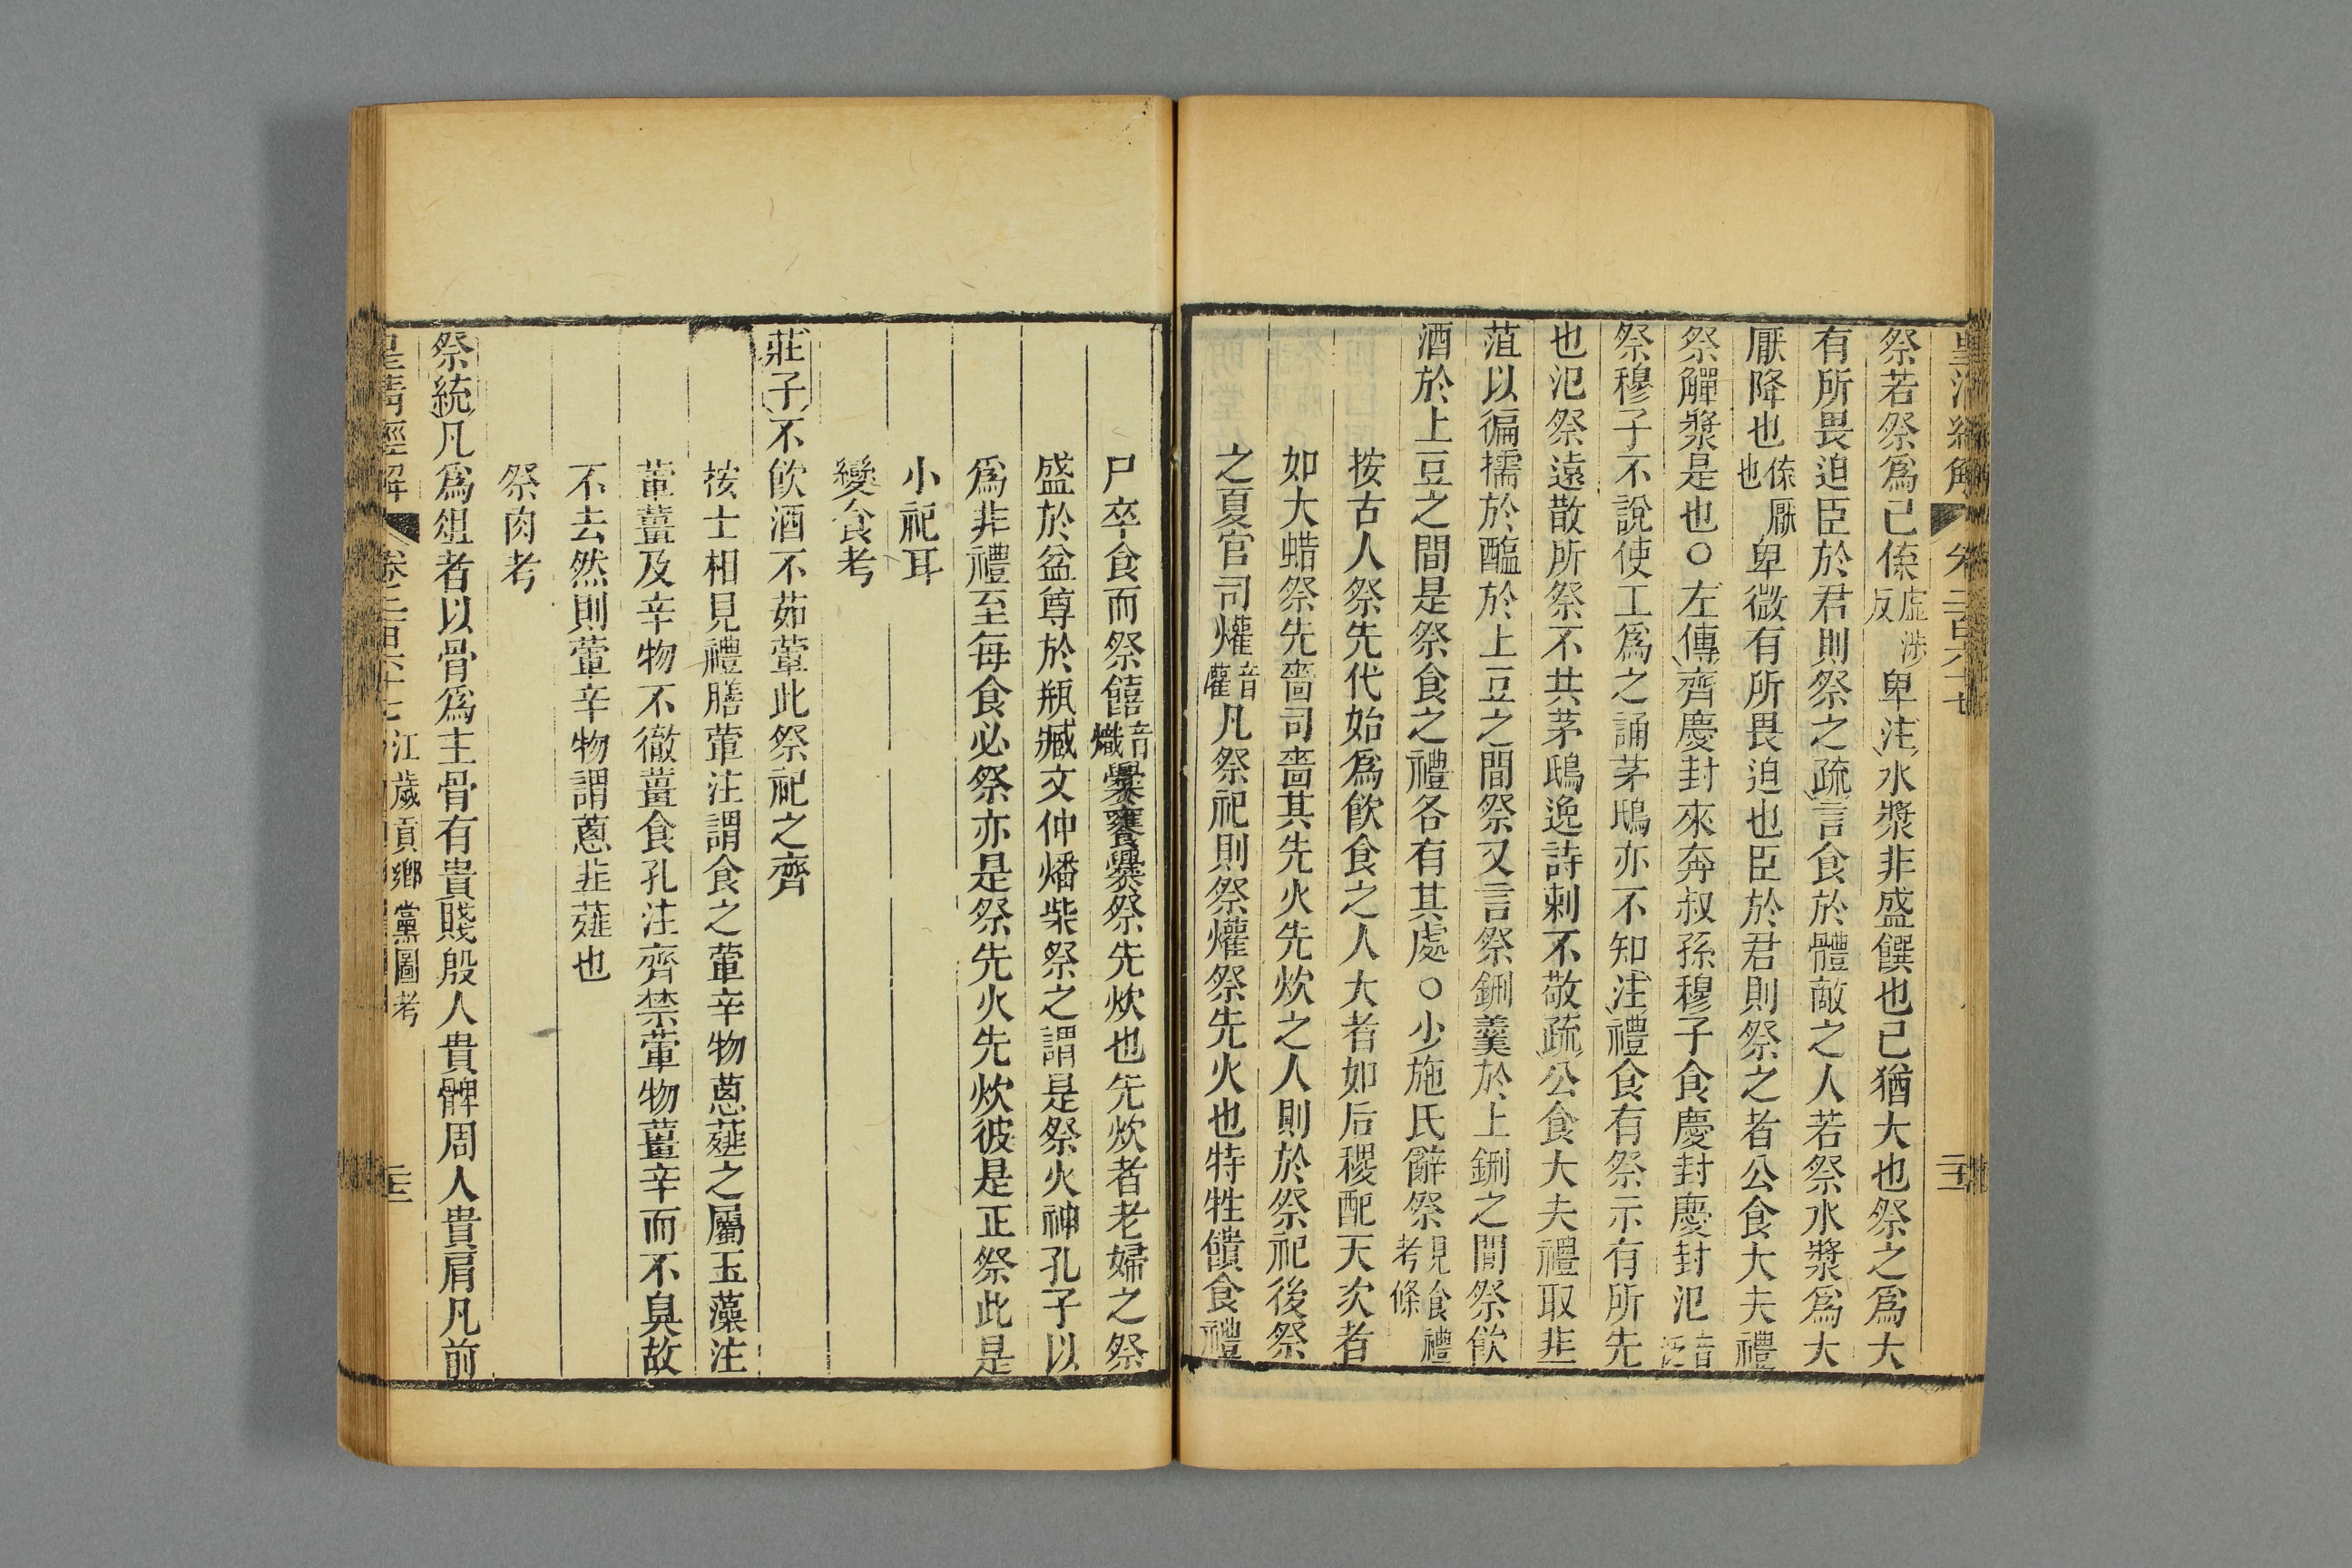 皇清經解 卷二百六十七
祭若祭爲己傃虛涉反卑注水漿非盛饌也己猶大也祭之爲大
有所畏迫臣於君則祭之疏言食於體敵之人若祭水漿爲大
厭降也傃厭也卑微有所畏迫也臣於君則祭之者公食大夫禮
祭觶漿是也○左傳齊慶封來奔叔孫穆子食慶封慶封氾音泛
祭穆子不說使工爲之誦茅鴟亦不知注禮食有祭示有所先
也氾祭遠散所祭不共茅鴟逸詩刺不敬疏公食大夫禮取韭
菹以徧擩於醢於上豆之間祭又言祭鉶羹於上鉶之間祭飲
酒於上豆之間是祭食之禮各有其處○少施氏辭祭見食禮考條
按古人祭先代始爲飲食之人大者如后稷配天次者
如大蜡祭先嗇司嗇其先火先炊之人則於祭祀後祭
之夏官司爟音灌凡祭祀則祭爟祭先火也特牲饋食禮
尸卒食而祭饎音熾爨饔爨祭先炊也先炊者老婦之祭
盛於盆尊於瓶臧文仲燔柴祭之謂是祭火神孔子以
爲非禮至每食必祭亦是祭先火先炊彼是正祭此是
小祀耳
變食考
莊子不飲酒不茹葷此祭祀之齊
按士相見禮膳葷注謂食之葷辛物蔥薤之屬玉藻注
葷薑及辛物不徹薑食孔注齊禁葷物薑辛而不臭故
不去然則葷辛物謂蔥韭薤也
祭肉考
祭統凡爲俎者以骨爲主骨有貴賤殷人貴髀周人貴肩凡前
皇清經解 卷二百六十七 江歲貢鄉黨圖考